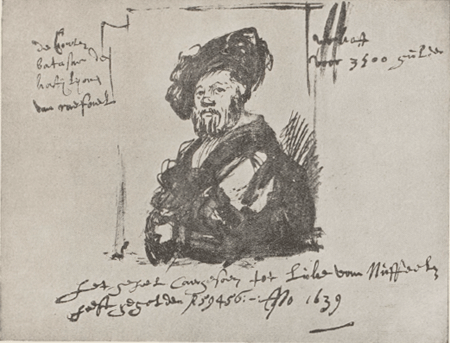 de Conte
batasar de
kastijlyone
van rafael
verkoft
voor 3500 gulden
het geheel caergesoen tot Luke van Nuffeelen
heeft gegolden f 59456:- Ao 1639